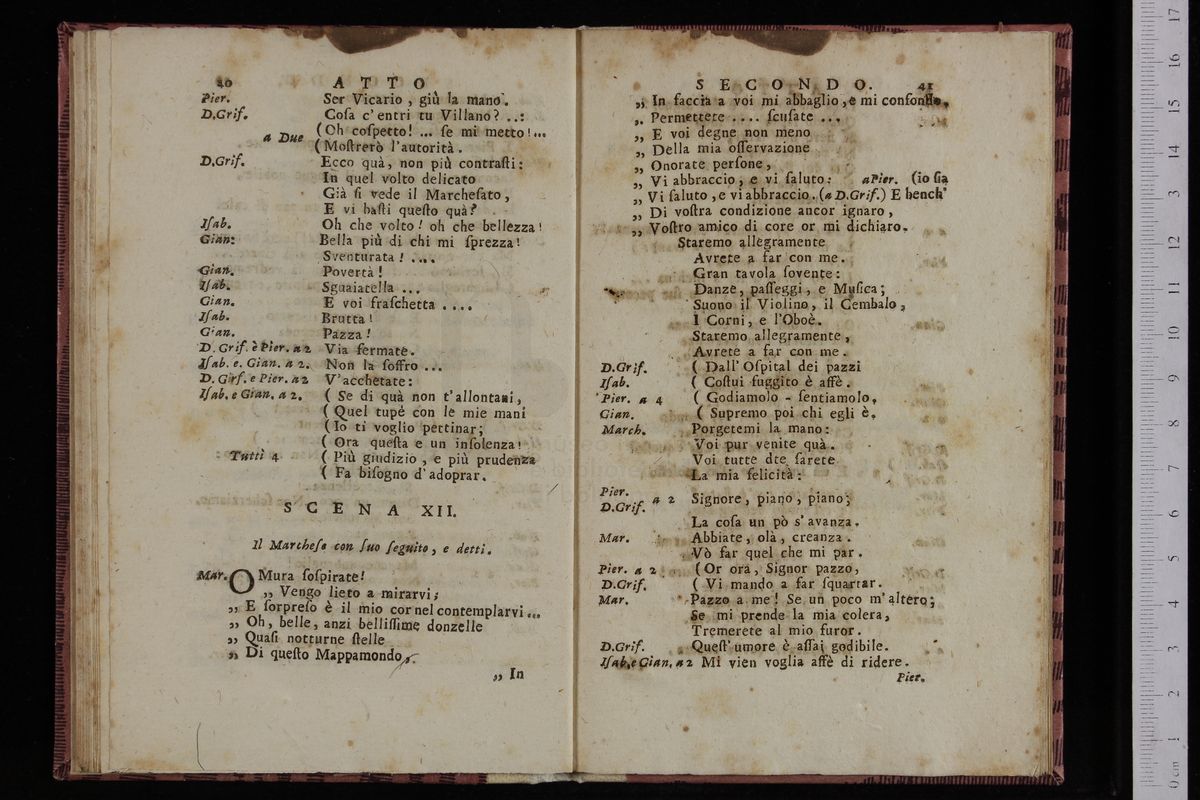 40 ATTO
Pier. Ser Vicario, giù la mano.
D.Grif. Coſa c'entri tu Villano? ..:
a Due (Oh coſpetto! ... ſe mi metto!...
(Moſtrerò l'autorità.
D.Grif. Ecco quà, non più contraſti:
In quel volto delicato
Già ſi vede il Marcheſato,
E vi baſti queſto quà?
Iſab. Oh che volto! oh che bellezza!
Gian: Bella più di chi mi ſprezza!
Sventurata! ....
Gian. Povertà!
Iſab. Sguaiatella ...
Gian. E voi fraſchetta ....
Iſab. Brutta!
Gian. Pazza!
D. Grif. è Pier. a 2 Via fermate.
Iſab. e. Gian. a 2. Non la ſoffro ...
D. Grf. e Pier. a 2 V'acchetate:
Iſab. e Gian. a 2. ( Se di quà non t'allontani,
( Quel tupé con le mie mani
(Io ti voglio pettinar;
( Ora queſta e un inſolenza!
Tutti 4 ( Più giudizio, e più prudenza
( Fa biſogno d'adoprar.
SCENA XII.
Il Marcheſe con ſuo ſeguito, e detti.
Mar. O Mura ſoſpirate!
„ Vengo lieto a mirarvi;
„ E ſorpreſo è il mio cor nel contemplarvi...
„ Oh, belle, anzi belliſſime donzelle
„ Quaſi notturne ſtelle
„ Di queſto Mappamondo,
„ In
SECONDO. 41
„ In faccia a voi mi abbaglio, e mi confondo.
„ Permettete .... ſcuſate ...
„ E voi degne non meno
„ Della mia oſſervazione
„ Onorate perſone,
„ Vi abbraccio, e vi ſaluto: a Pier. (io ſia
„ Vi ſaluto, e vi abbraccio. (a D.Grif.) E bench'
„ Di voſtra condizione ancor ignaro,
„ Voſtro amico di core or mi dichiaro.
Staremo allegramente
Avrete a far con me.
Gran tavola ſovente:
Danze, paſſeggi, e Muſica;
Suono il Violino, il Cembalo,
I Corni, e l'Oboè.
Staremo allegramente,
Avrete a far con me.
D.Grif. ( Dall' Oſpital dei pazzi
Iſab. ( Coſtui fuggito è affè.
Pier. a 4 ( Godiamolo - ſentiamolo,
Gian. ( Supremo poi chi egli è.
March. Porgetemi la mano:
Voi pur venite quà.
Voi tutte dte ſarete
La mia felicità:
Pier.
D.Grif. a 2 Signore, piano, piano;
La coſa un pò s'avanza.
Mar. Abbiate, olà, creanza.
Vò far quel che mi par.
Pier. a 2 (Or ora, Signor pazzo,
D.Grif. ( Vi mando a far ſquartar.
Mar. Pazzo a me! Se un poco m'altero;
Se mi prende la mia colera,
Tremerete al mio furor.
D.Grif. Queſt'umore è aſſai godibile.
Iſab. e Gian. a 2 Mi vien voglia affè di ridere.
Pier.